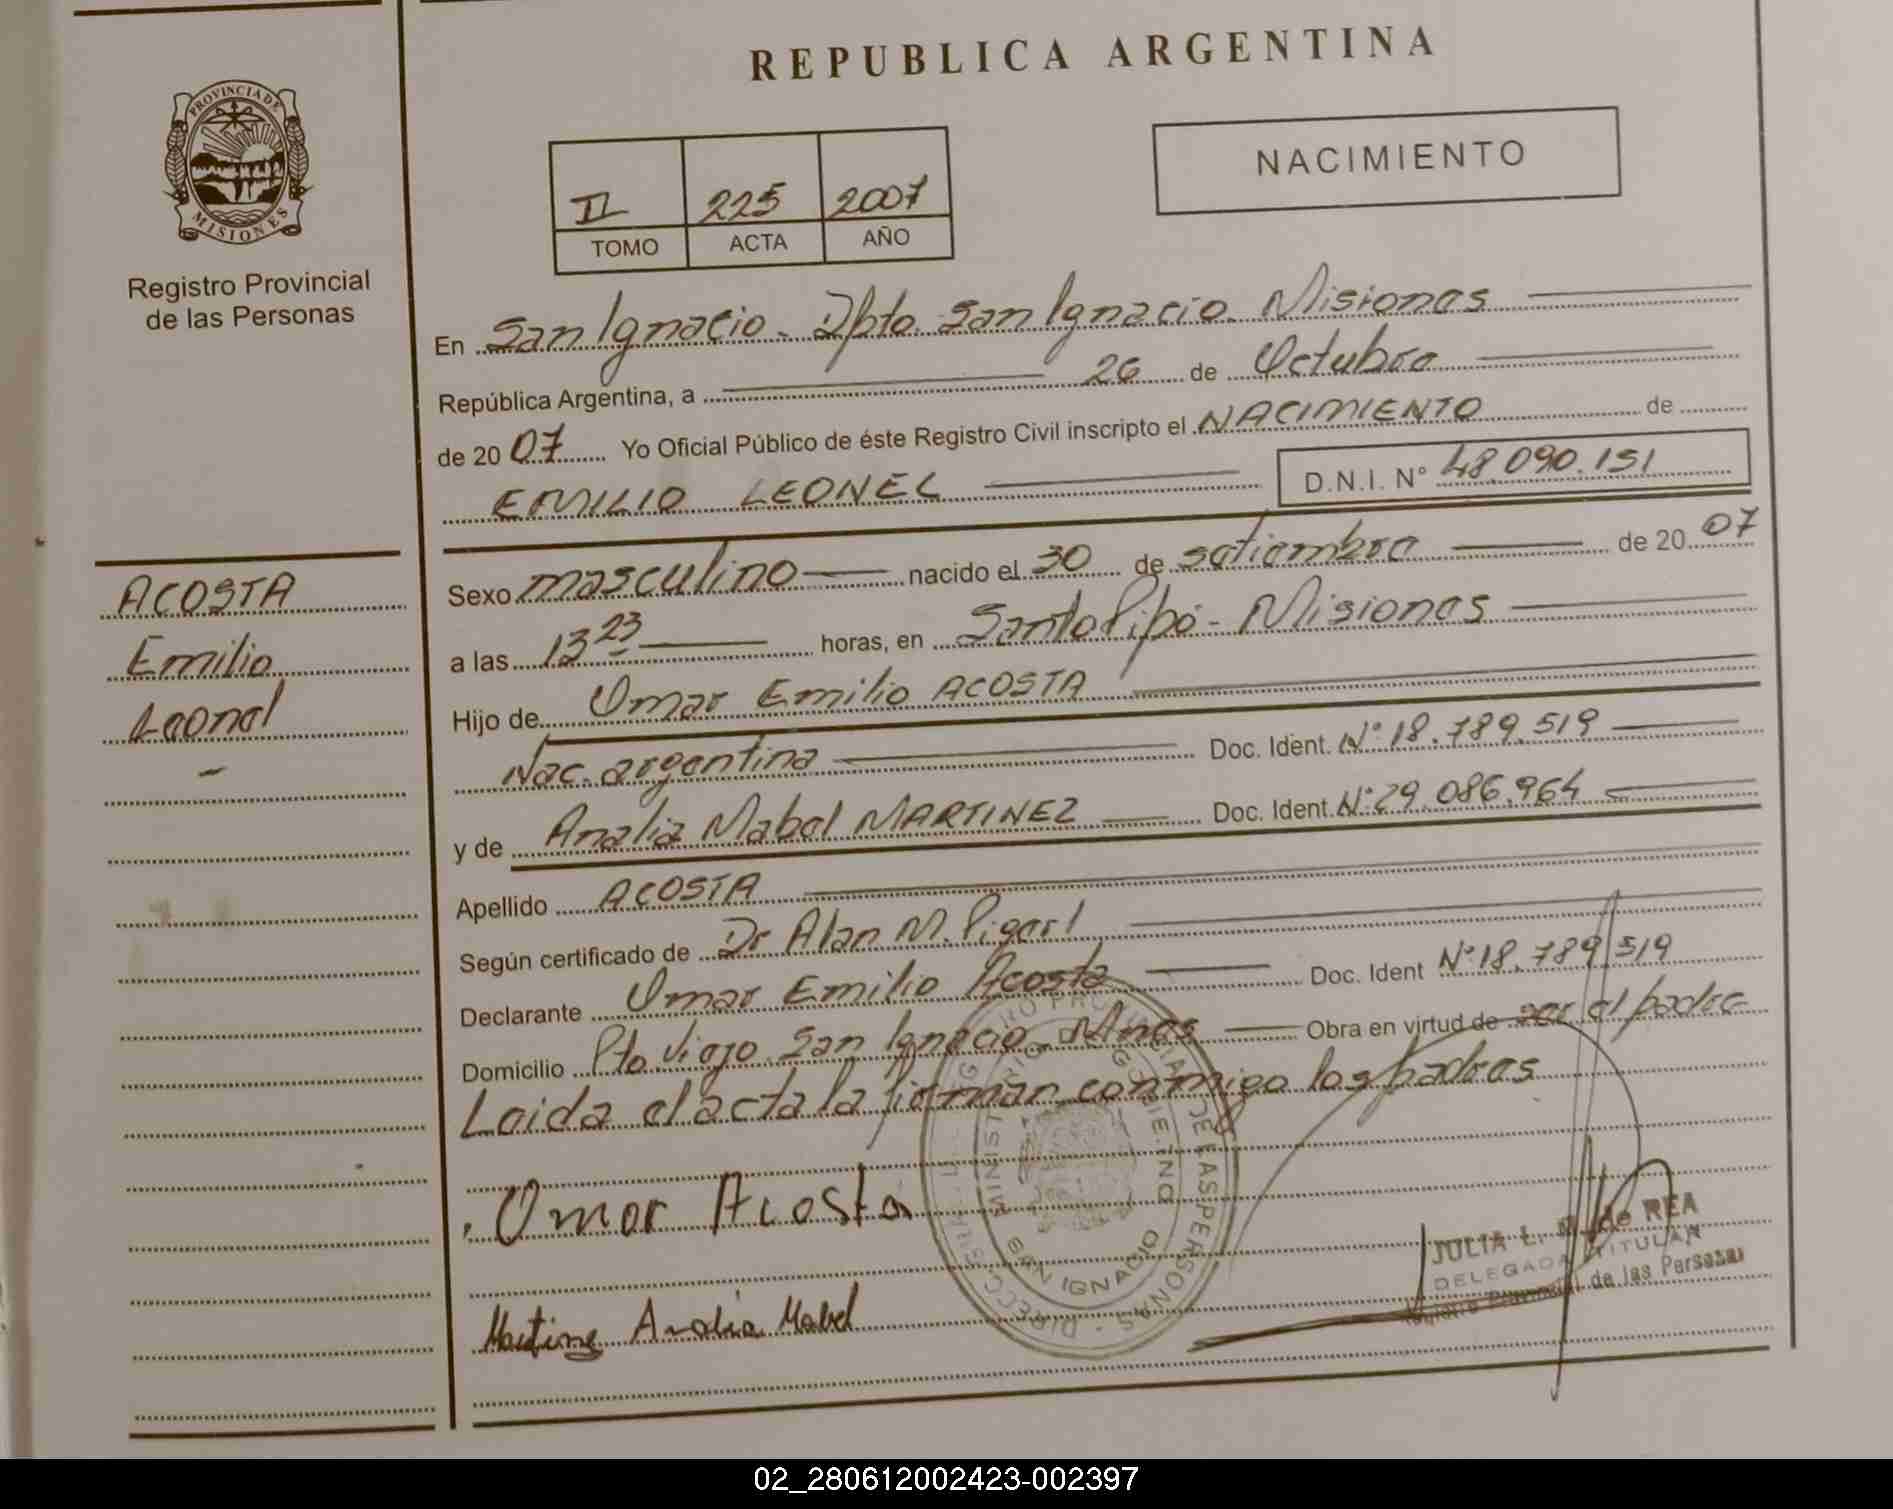 REPUBLICA ARGENTINA
PROVINCIA DE
MISIONES
Registro Provincial
de las Personas
II 225 2007
TOMO ACTA AÑO
NACIMIENTO
En San Ignacio - Dpto. San Ignacio. Misiones
República Argentina, a 26 de Octubre
de 2007 Yo Oficial Público de éste Registro Civil inscripto el NACIMIENTO de
EMILIO LEONEL D.N.I. N° 48.090.151
ACOSTA
Emilio
Leonel
Sexo masculino nacido el 30 de setiembre de 2007
a las 13 23 horas, en Santo Pipó - Misiones
Hijo de Omar Emilio ACOSTA
Nac. argentina Doc. Ident. N° 18.789.519
y de Analia Mabel MARTINEZ Doc. Ident. N° 29.086.964
Apellido ACOSTA
Según certificado de Dr Alan M.
Declarante Omar Emilio Acosta Doc. Ident N° 18.789.519
Domicilio Pto. Viejo San Ignacio - Mnes Obra en virtud de ser el padre
Leida el acta la firman conmigo los padres
Omar Acosta
Martinez Analia Mabel
SAN IGNACIO
JULIA L. M. de REA
DELEGADA TITULAR
Registro Provincial de las Personas
02_280612002423-002397